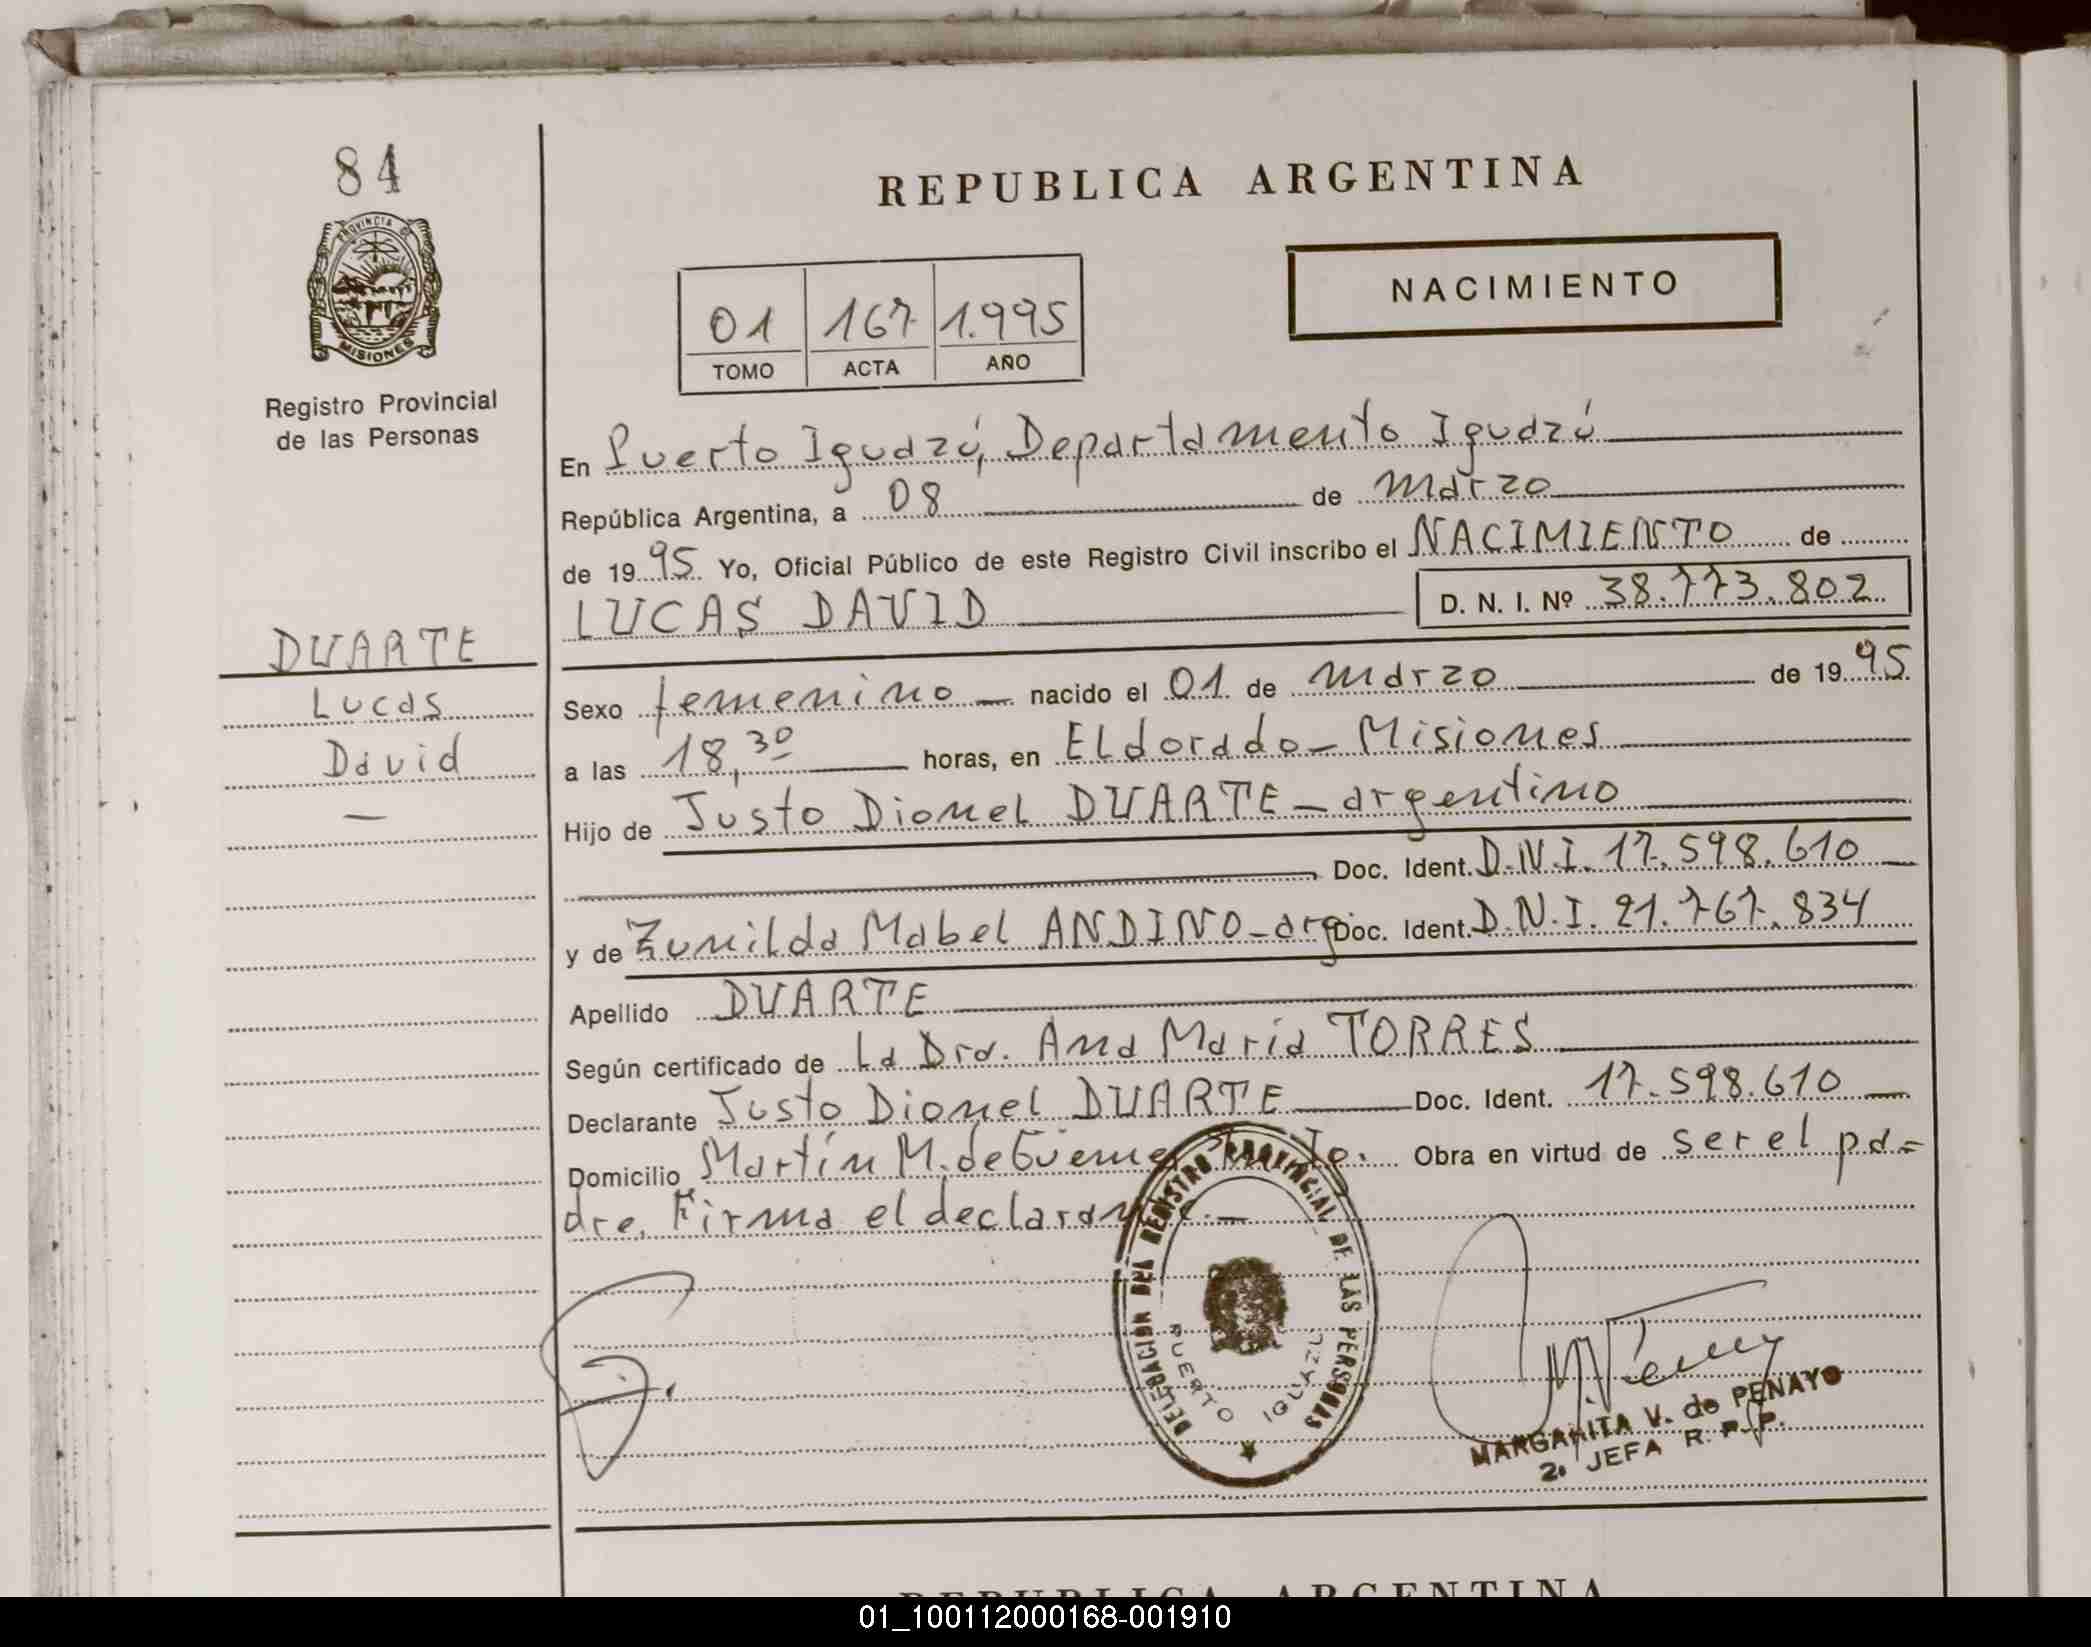 84
PROVINCIA DE
MISIONES
Registro Provincial
de las Personas
REPUBLICA ARGENTINA
NACIMIENTO
01 167 1.995
TOMO ACTA AÑO
En Puerto Iguazú, Departamento Iguazú
República Argentina, a 08 de marzo
de 1995 Yo, Oficial Público de este Registro Civil inscribo el NACIMIENTO de
LUCAS DAVID D. N. I. Nº 38.773.802
DUARTE
Lucas
David
Sexo femenino nacido el 01 de marzo de 1995
a las 18,30 horas, en Eldorado - Misiones
Hijo de Justo Dionel DUARTE - argentino
Doc. Ident. D.N.I. 17.598.610
y de Zunilda Mabel ANDINO - arg Doc. Ident. D.N.I. 21.767.834
Apellido DUARTE
Según certificado de La Dra. Ana María TORRES
Declarante Justo Dionel DUARTE Doc. Ident. 17.598.610
Domicilio Martín M. de Güemes Obra en virtud de ser el pa-
dre. Firma el declarante.-
DELEGACION DEL REGISTRO PROVINCIAL DE LAS PERSONAS
PUERTO IGUAZU
MARGARITA V. de PENAYO
2. JEFA R. P. P.
REPUBLICA ARGENTINA
01_100112000168-001910